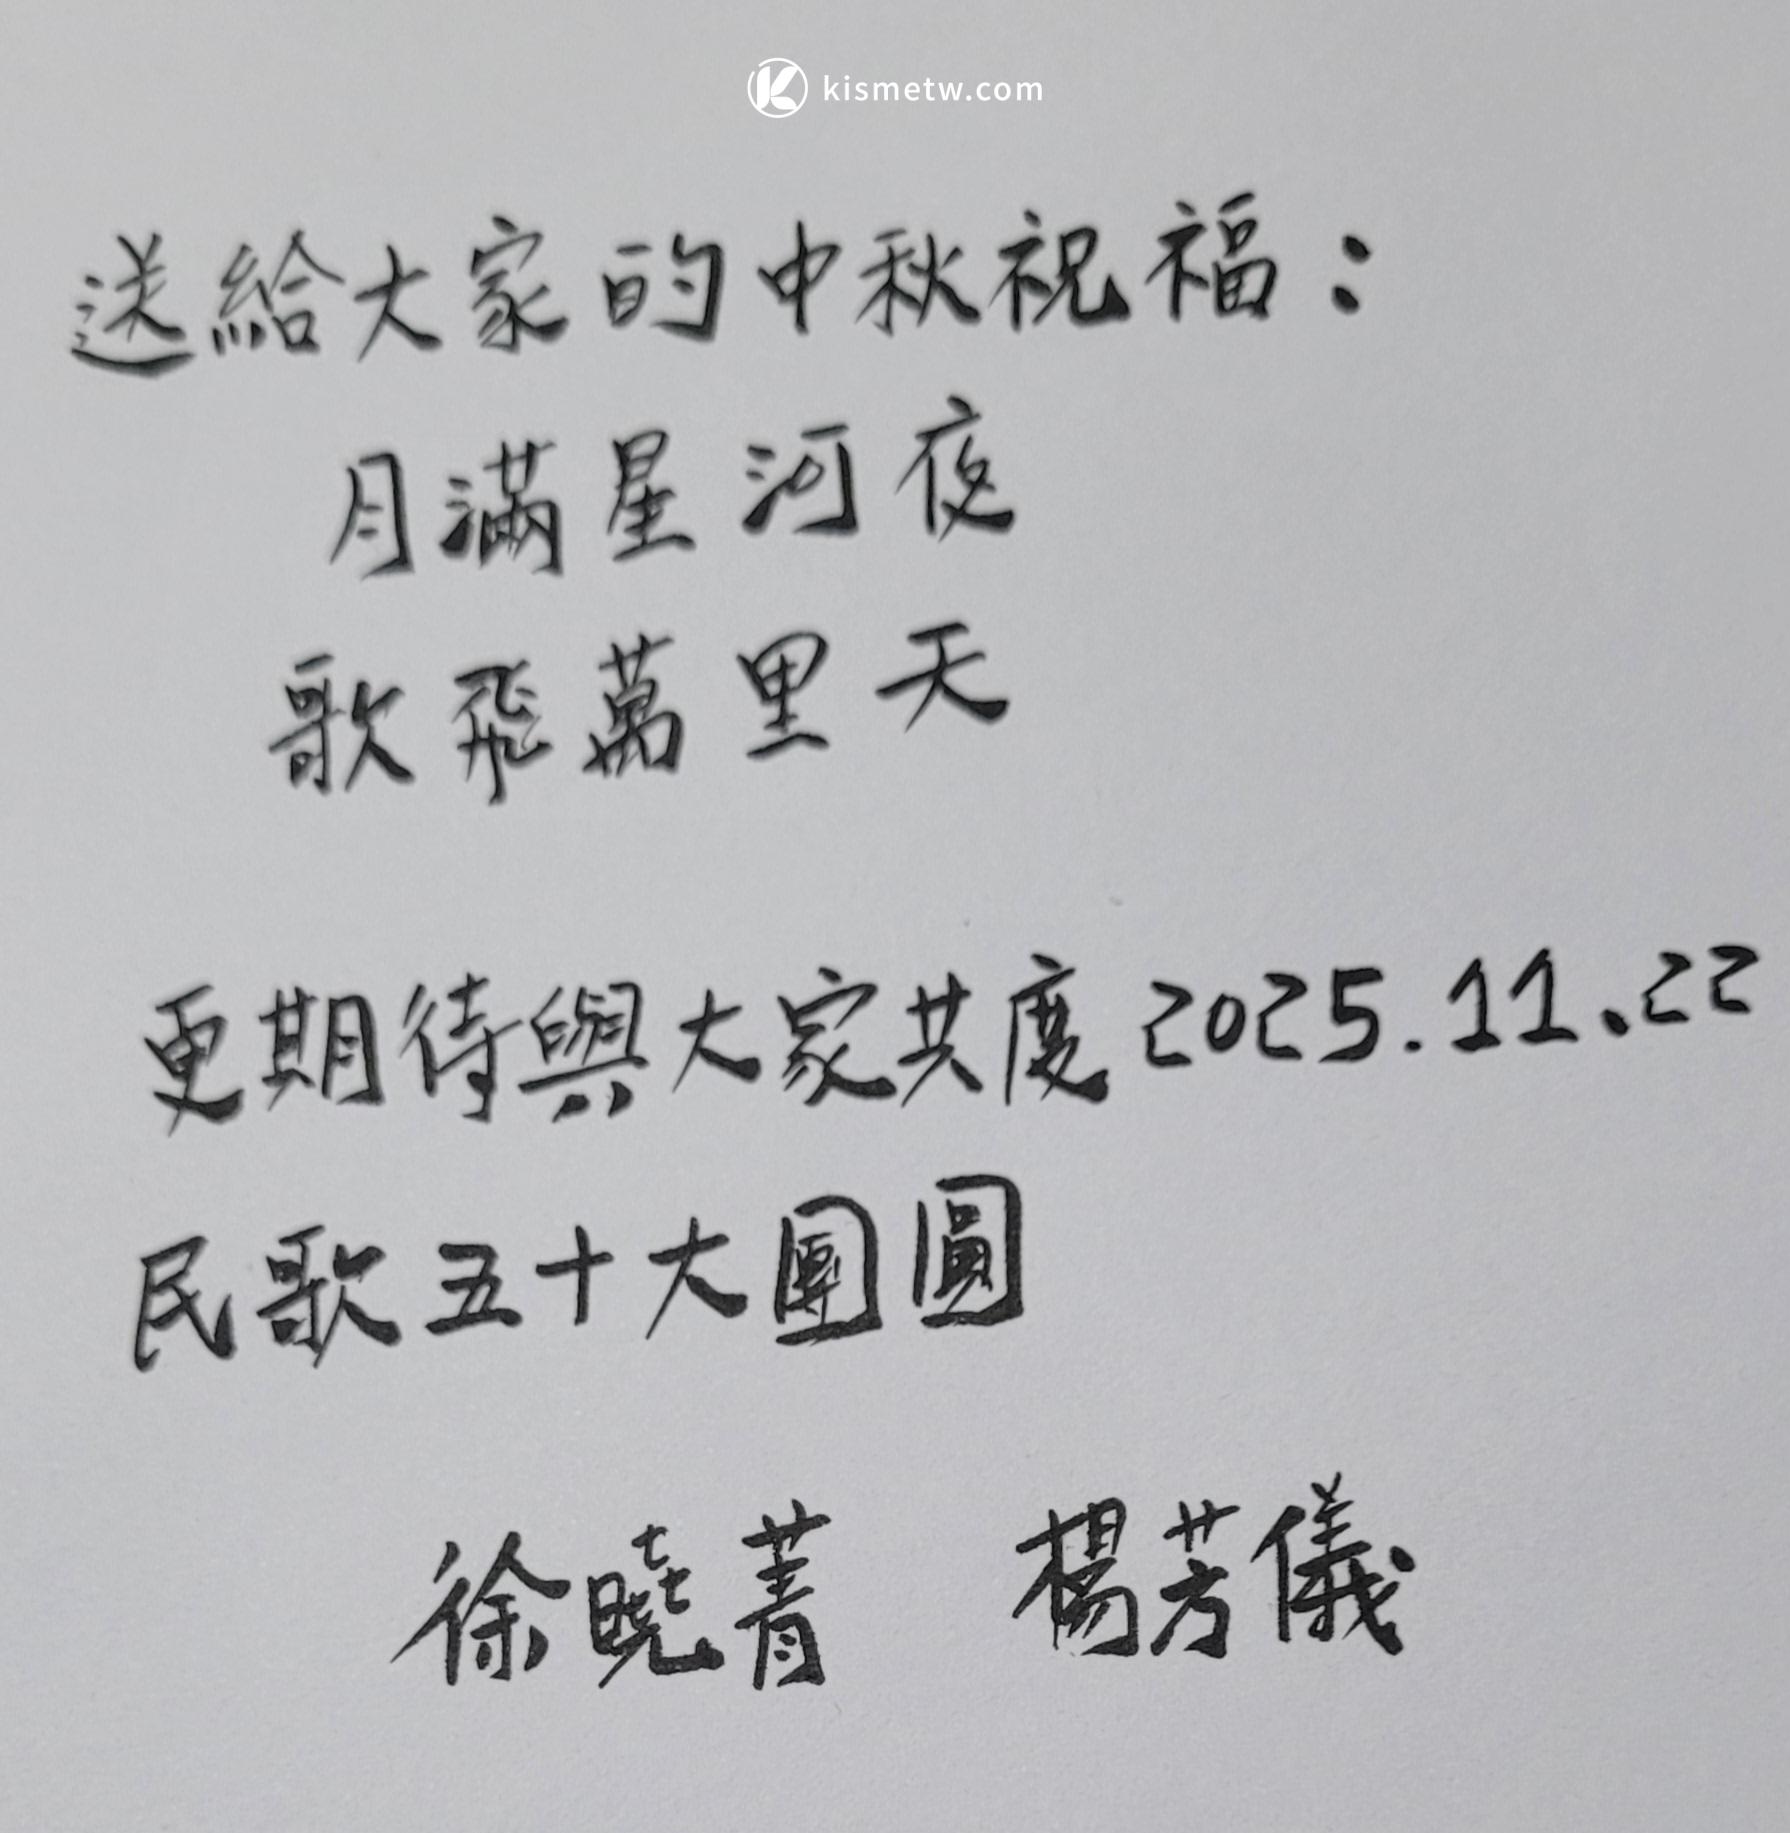 kismetw.com
送給大家的中秋祝福：
月滿星河夜
歌飛萬里天
更期待與大家共度2025.11.22
民歌五十大團圓
徐曉菁 楊芳儀